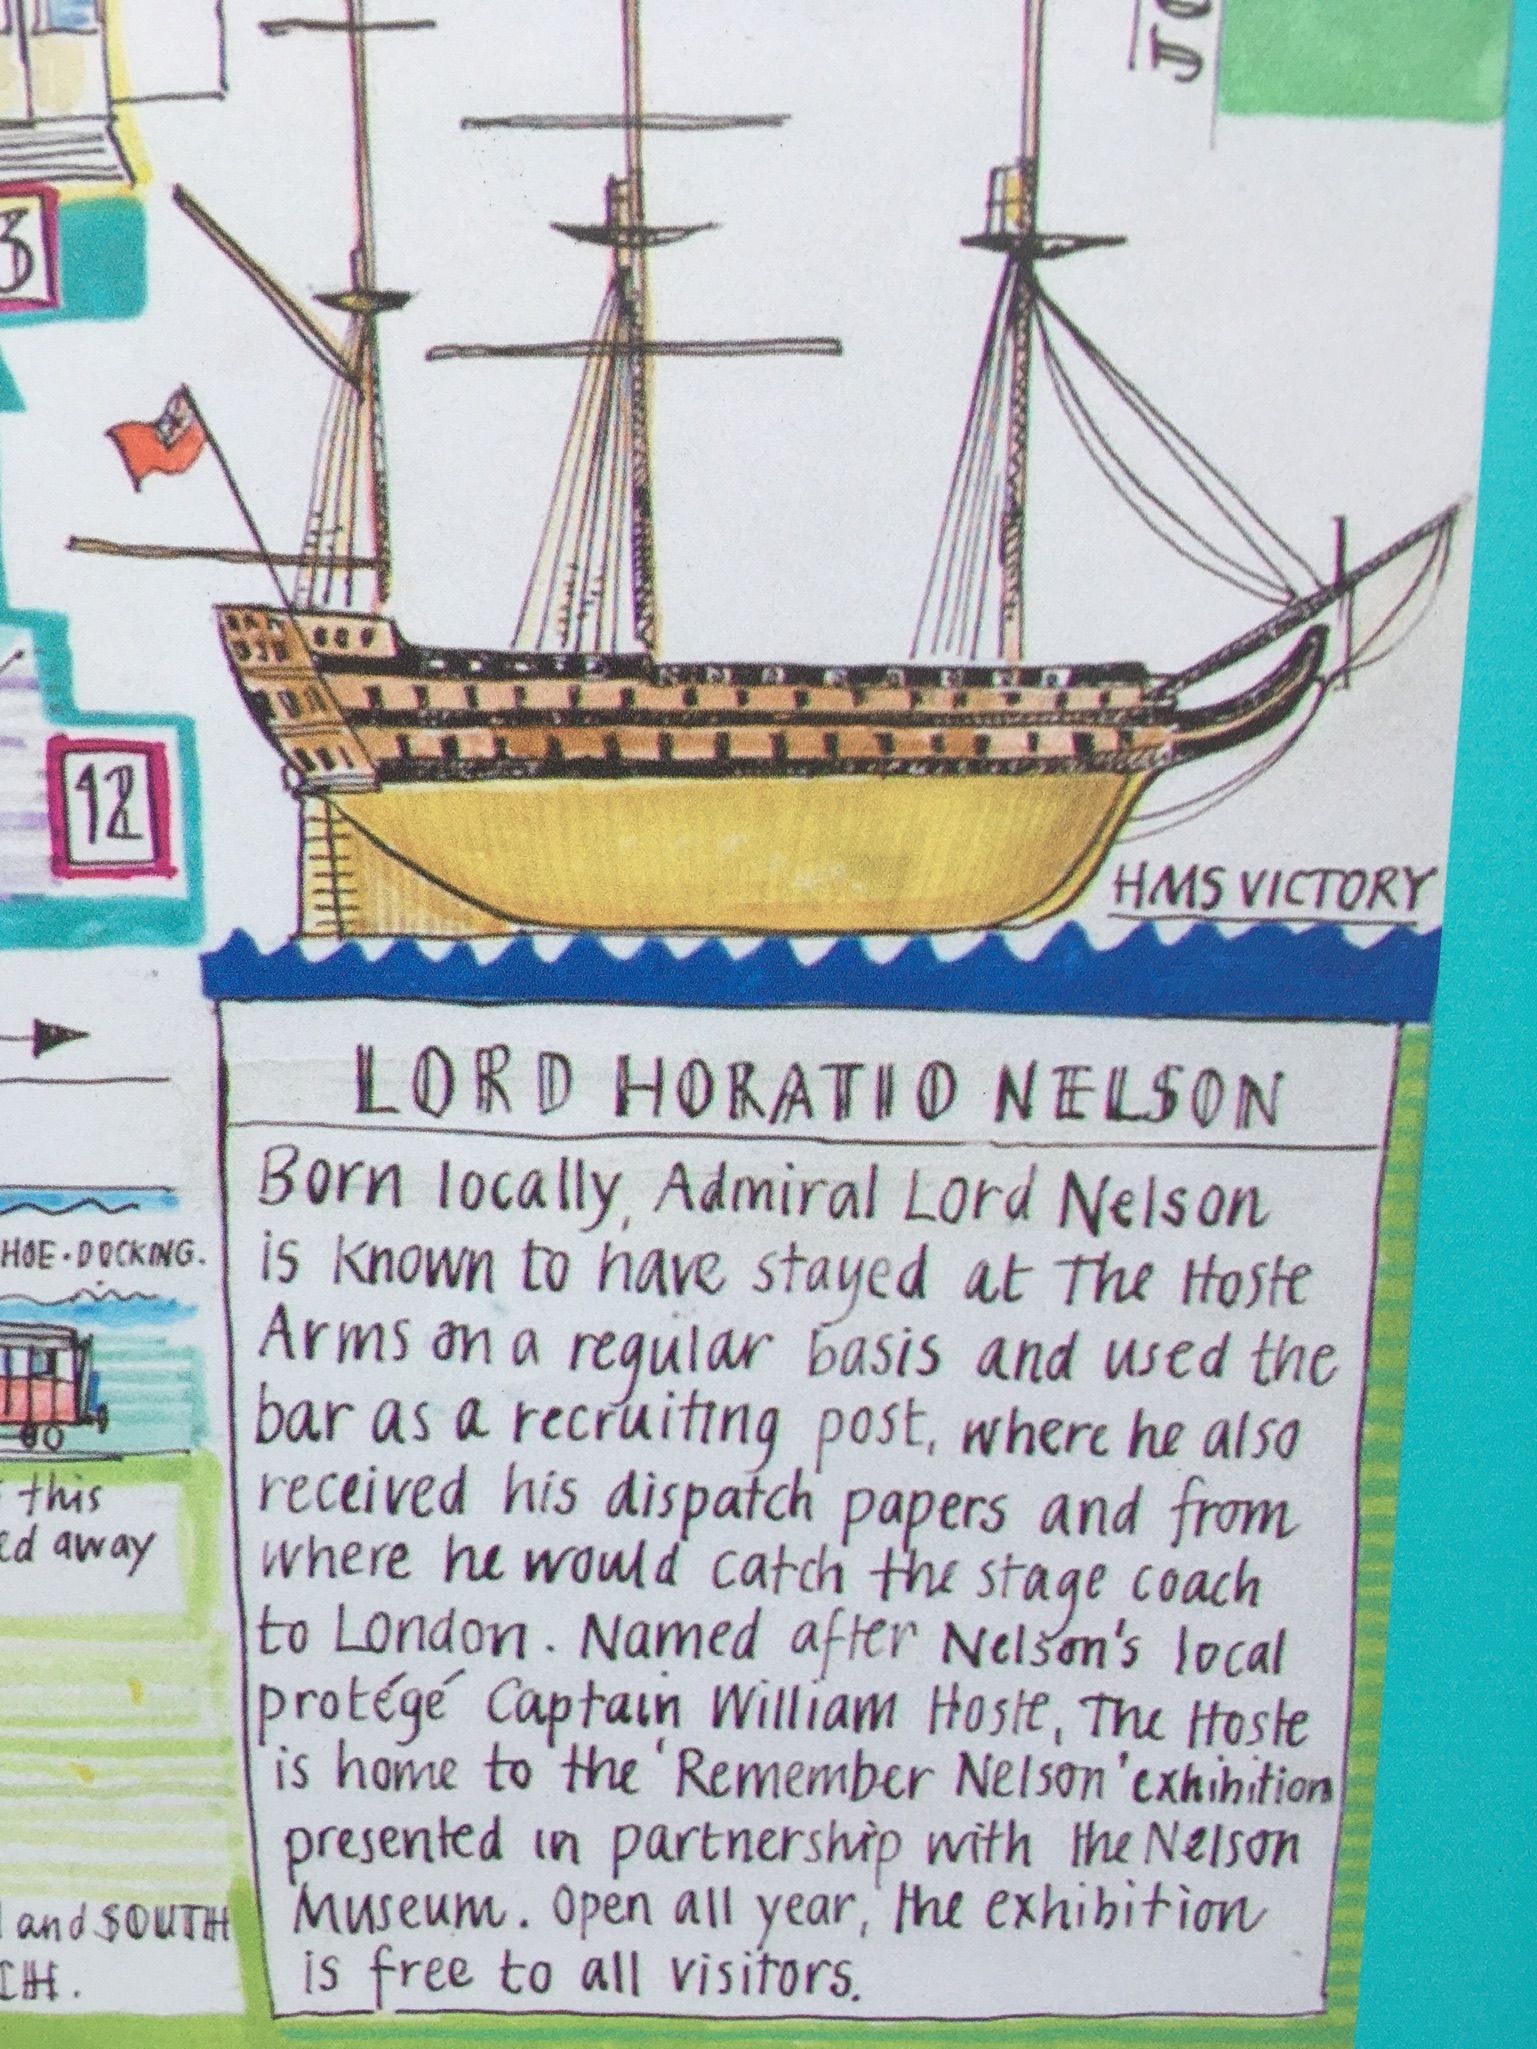 JO
3
12
HMS VICTORY
HOE · DOCKING.
this
ed away
and SOUTH
CH.
LORD HORATIO NELSON
Born locally, Admiral Lord Nelson
is known to have stayed at The Hoste
Arms on a regular basis and used the
bar as a recruiting post, where he also
received his dispatch papers and from
where he would catch the stage coach
to London. Named after Nelson's local
protégé Captain William Hoste, The Hoste
is home to the 'Remember Nelson' exhibition
presented in partnership with the Nelson
Museum. Open all year, the exhibition
is free to all visitors.